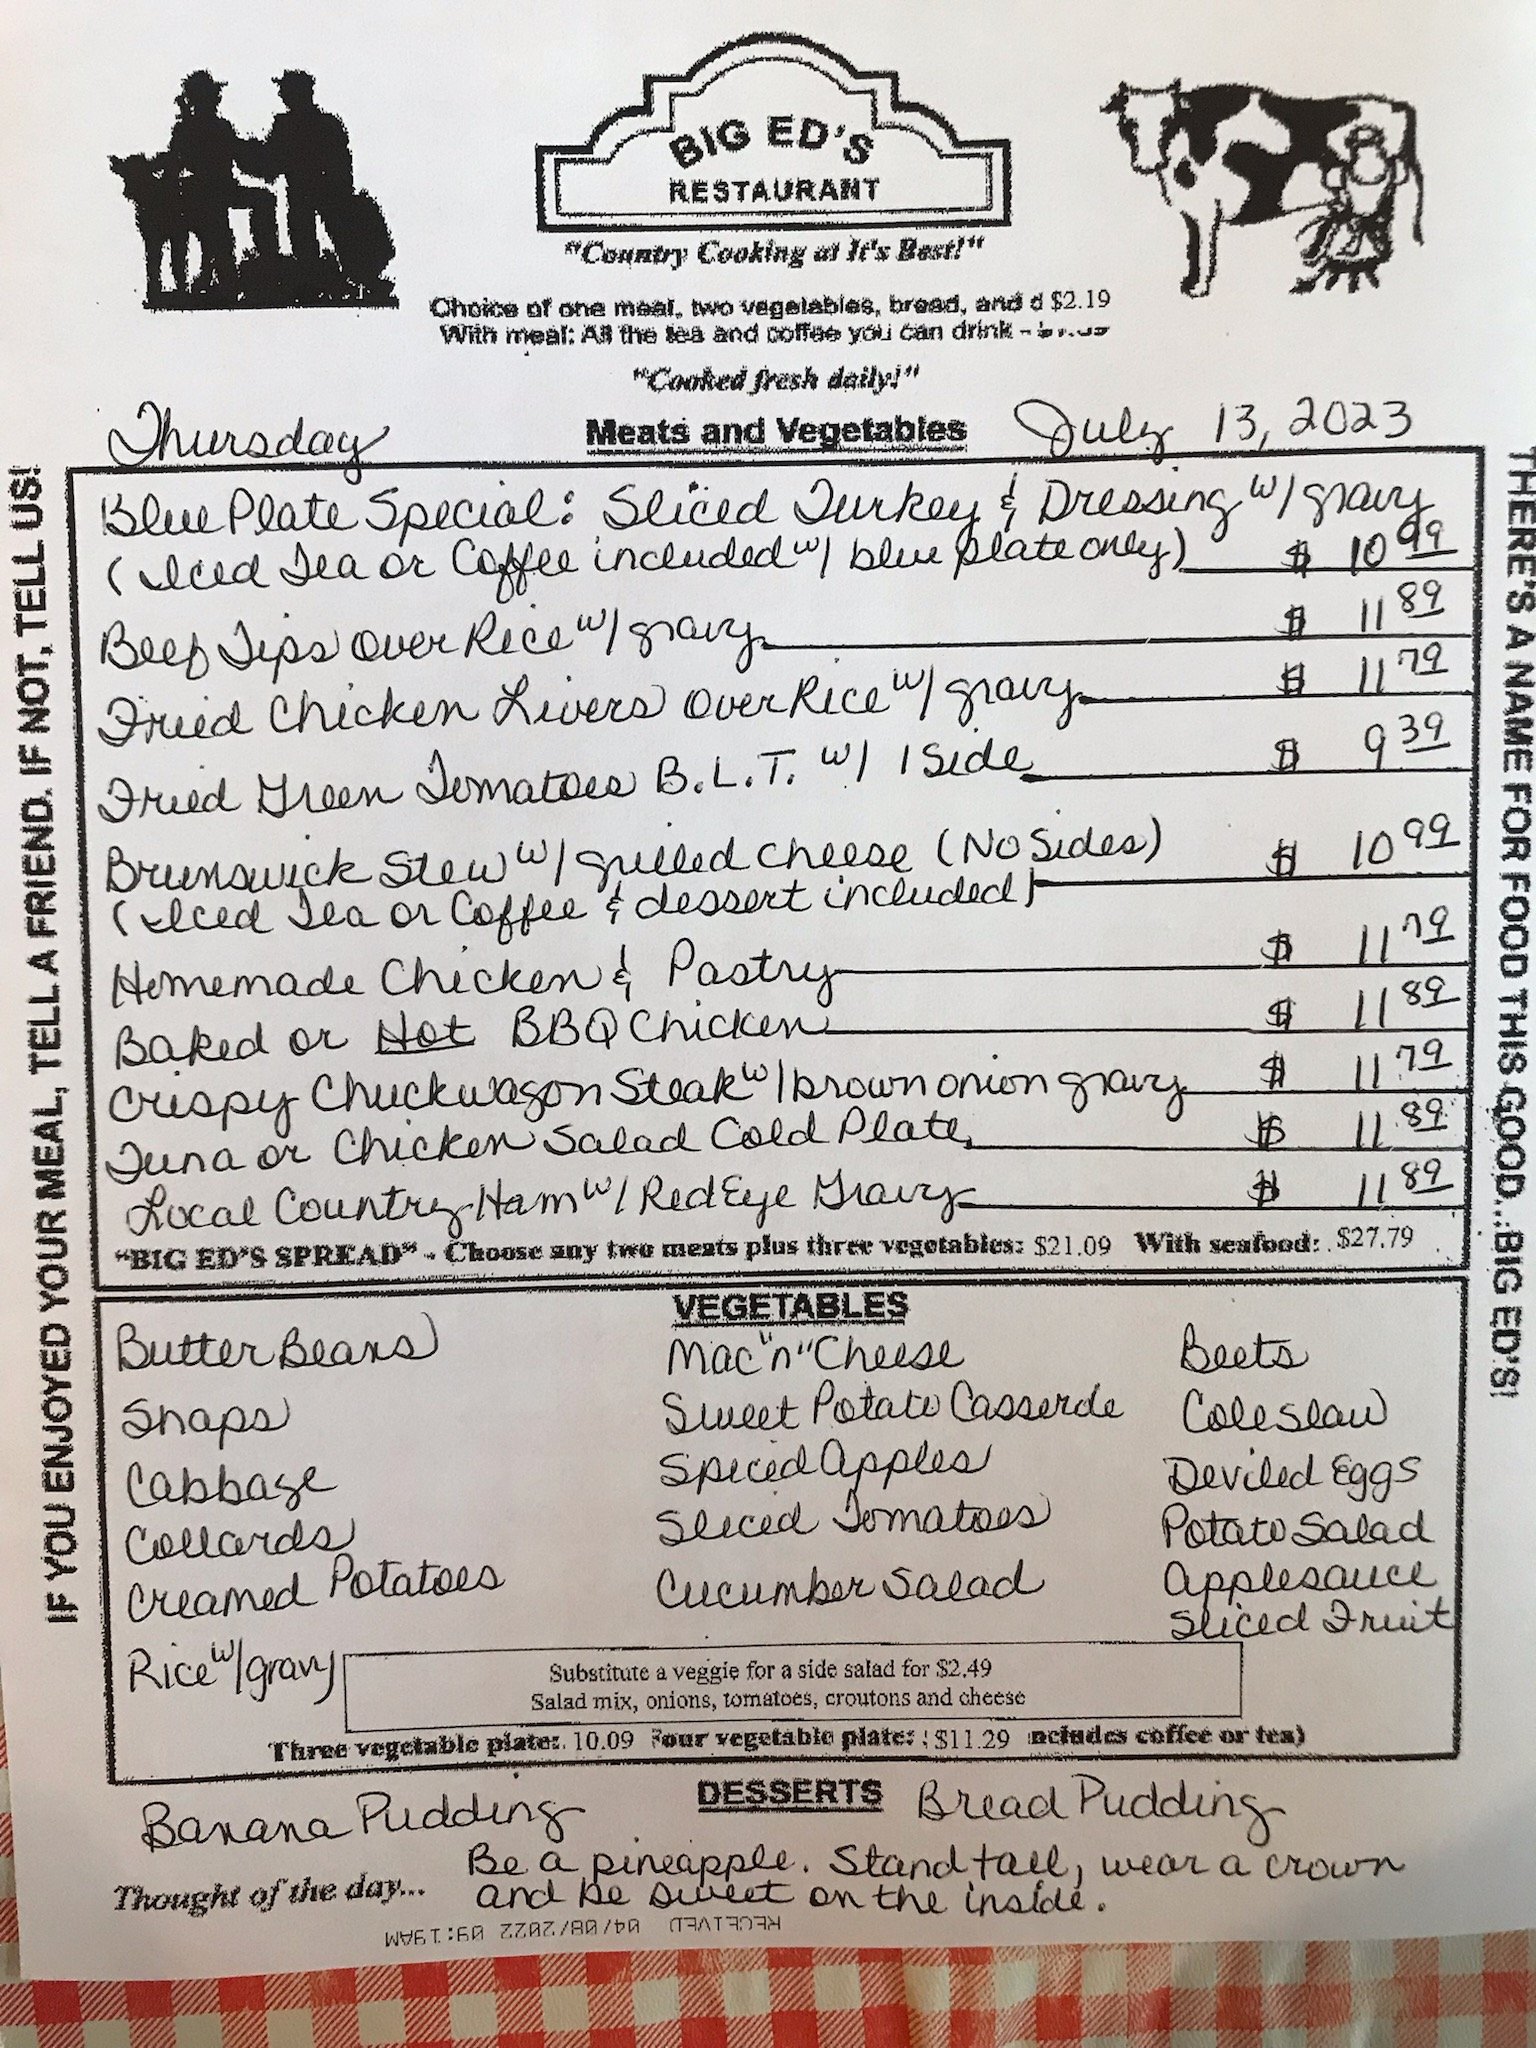 BIG ED'S
RESTAURANT
"Country Cooking at It's Best!"
Choice of one meat, two vegetables, bread, and d $2.19
With meal: All the tea and coffee you can drink -
"Cooked fresh daily!"
Thursday Meats and Vegetables July 13, 2023
Blue Plate Special: Sliced Turkey & Dressing w/ gravy
(Iced Tea or Coffee included w/ blue plate only) $ 10 99
Beef Tips Over Rice w/ gravy $ 11 89
Fried Chicken Livers Over Rice w/ gravy $ 11 79
Fried Green Tomatoes B.L.T. w/ 1 Side $ 9 39
Brunswick Stew w/ grilled cheese (No Sides) $ 10 99
(Iced Tea or Coffee & dessert included)
Homemade Chicken & Pastry $ 11 79
Baked or Hot BBQ Chicken $ 11 89
Crispy Chuckwagon Steak w/ brown onion gravy $ 11 79
Tuna or Chicken Salad Cold Plate $ 11 89
Local Country Ham w/ RedEye Gravy $ 11 89
"BIG ED'S SPREAD" - Choose any two meats plus three vegetables: $21.09 With seafood: $27.79
VEGETABLES
Butter Beans Mac "n" Cheese Beets
Snaps Sweet Potato Casserole Coleslaw
Cabbage Spiced Apples Deviled Eggs
Collards Sliced Tomatoes Potato Salad
Creamed Potatoes Cucumber Salad Applesauce
Sliced Fruit
Rice w/ gravy
Substitute a veggie for a side salad for $2.49
Salad mix, onions, tomatoes, croutons and cheese
Three vegetable plate: 10.09 Four vegetable plate: $11.29 ncludes coffee or tea)
DESSERTS
Banana Pudding Bread Pudding
Thought of the day... Be a pineapple. Stand tall, wear a crown
and be sweet on the inside.
RECEIVED 04/08/2022 09:19AM
IF YOU ENJOYED YOUR MEAL, TELL A FRIEND. IF NOT, TELL US!
THERE'S A NAME FOR FOOD THIS GOOD...BIG ED'S!